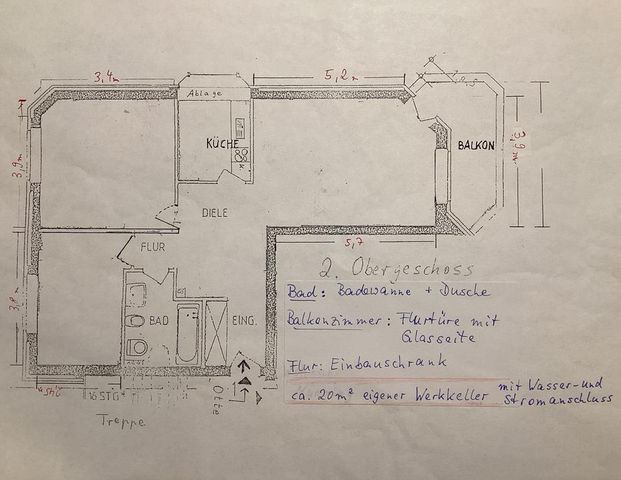 3,4m
5,2m
Ablage
KÜCHE
BALKON
3,9m
3,9m
DIELE
FLUR
5,7
2. Obergeschoss
Bad: Badewanne + Dusche
3,8m
BAD
EING.
Balkonzimmer: Flurtüre mit
Glasseite
Flur: Einbauschrank
ca. 20m² eigener Werkkeller mit Wasser- und
Stromanschluss
16 STG
Otte
Treppe